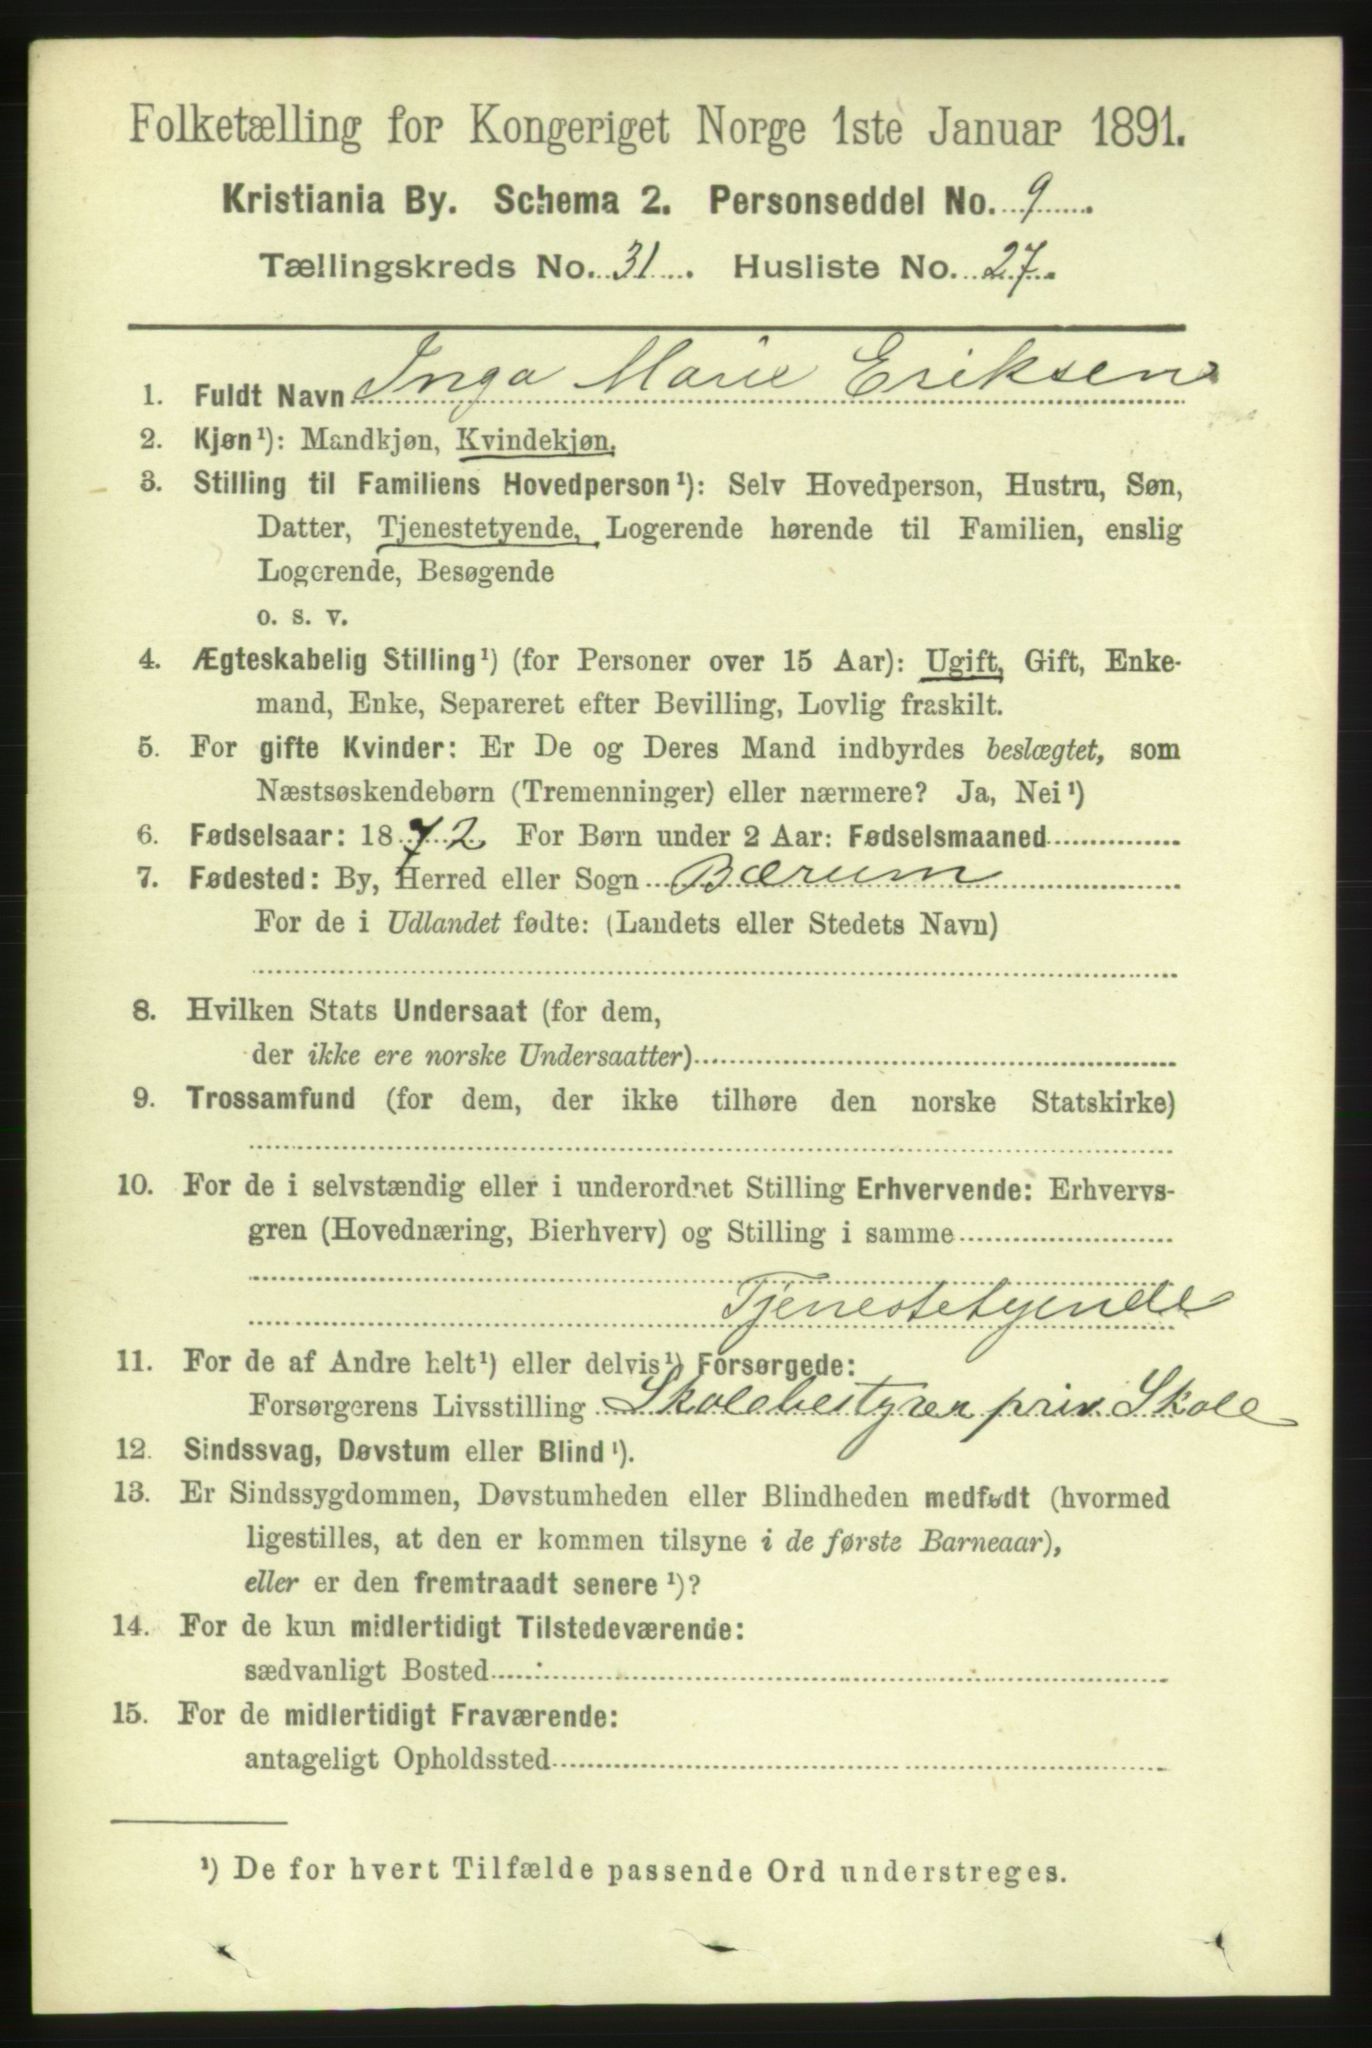 Folketælling for Kongeriget Norge 1ste Januar 1891.
Kristiania By. Schema 2. Personseddel No. 9
Tællingskreds No. 31. Husliste No. 27.
1. Fuldt Navn Inga Marie Eriksen
2. Kjøn¹): Mandkjøn, Kvindekjøn.
3. Stilling til Familiens Hovedperson¹): Selv Hovedperson, Hustru, Søn,
Datter, Tjenestetyende, Logerende hørende til Familien, enslig
Logerende, Besøgende
o. s. v.
4. Ægteskabelig Stilling¹) (for Personer over 15 Aar): Ugift, Gift, Enke-
mand, Enke, Separeret efter Bevilling, Lovlig fraskilt.
5. For gifte Kvinder: Er De og Deres Mand indbyrdes beslægtet, som
Næstsøskendebørn (Tremenninger) eller nærmere? Ja, Nei¹)
6. Fødselsaar: 1872 For Børn under 2 Aar: Fødselsmaaned
7. Fødested: By, Herred eller Sogn Bærum
For de i Udlandet fødte: (Landets eller Stedets Navn)
8. Hvilken Stats Undersaat (for dem,
der ikke ere norske Undersaatter)
9. Trossamfund (for dem, der ikke tilhøre den norske Statskirke)
10. For de i selvstændig eller i underordnet Stilling Erhvervende: Erhvervs-
gren (Hovednæring, Bierhverv) og Stilling i samme
Tjenestetyende
11. For de af Andre helt¹) eller delvis¹) Forsørgede:
Forsørgerens Livsstilling Skolebestyrer priv. Skole
12. Sindssvag, Døvstum eller Blind¹).
13. Er Sindssygdommen, Døvstumheden eller Blindheden medfødt (hvormed
ligestilles, at den er kommen tilsyne i de første Barneaar),
eller er den fremtraadt senere¹)?
14. For de kun midlertidigt Tilstedeværende:
sædvanligt Bosted
15. For de midlertidigt Fraværende:
antageligt Opholdssted
¹) De for hvert Tilfælde passende Ord understreges.